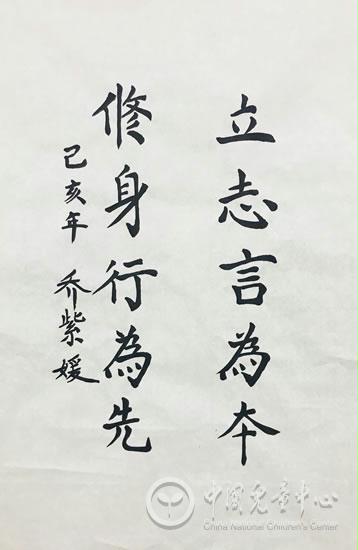 立志言為本
修身行為先
己亥年 乔紫媛
中国儿童中心
China National Children's Center